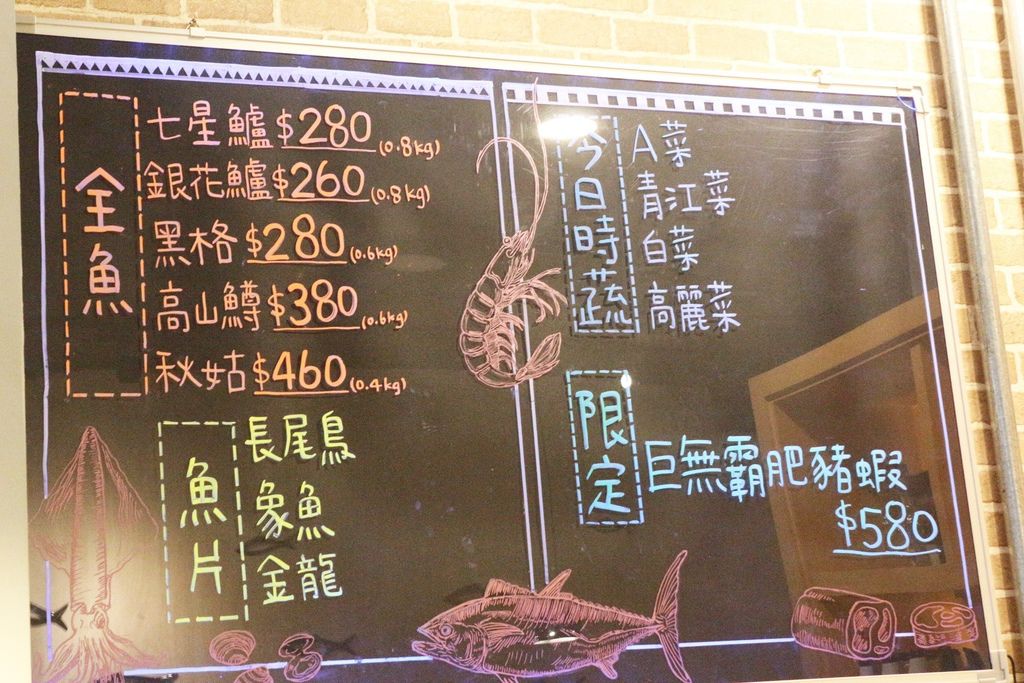 全魚
七星鱸 $280 (0.8kg)
銀花鱸 $260 (0.8kg)
黑格 $280 (0.6kg)
高山鱒 $380 (0.6kg)
秋姑 $460 (0.4kg)
魚片
長尾鳥
象魚
金龍
今日時蔬
A菜
青江菜
白菜
高麗菜
限定
巨無霸肥豬蝦
$580